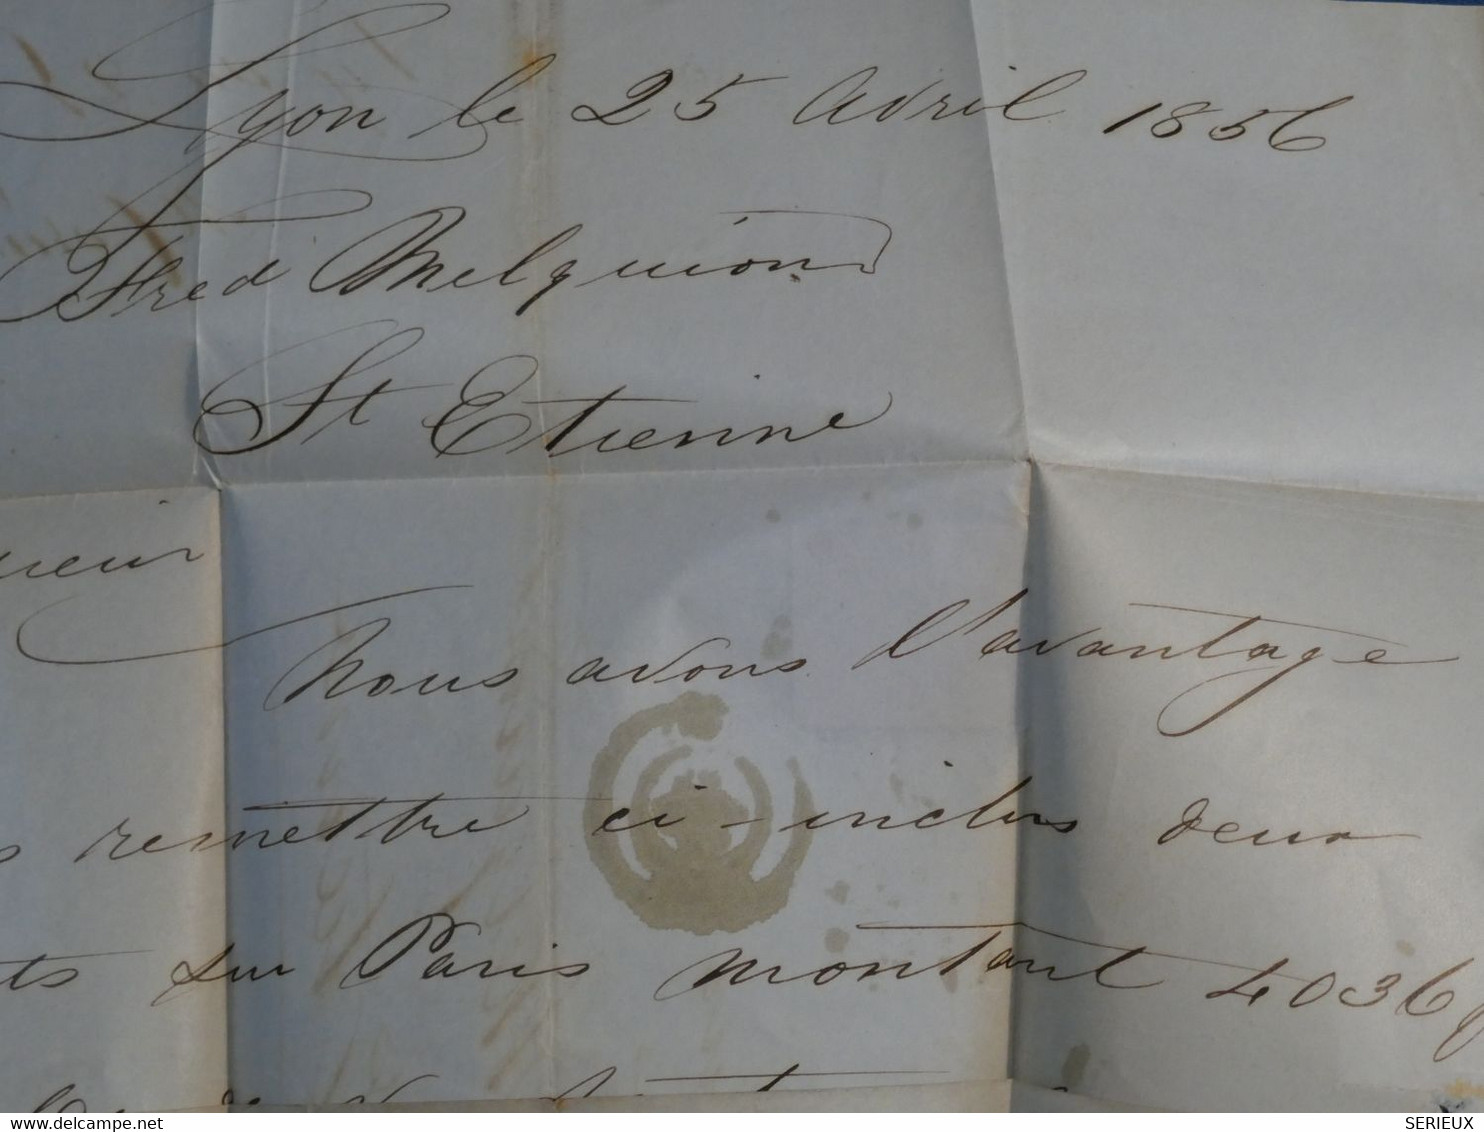 Lyon le 25 Avril 1856
Fred Melquiond
St Etienne
sieur
Nous avons l'avantage
remettre ci-inclus deux
sur Paris montant 4036 f
delcampe.net
SERIEUX